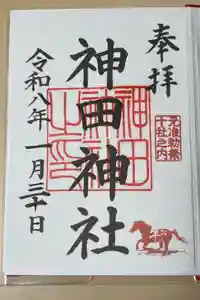 奉拝
元准勅祭
十社之内
神田神社
令和八年一月三十日